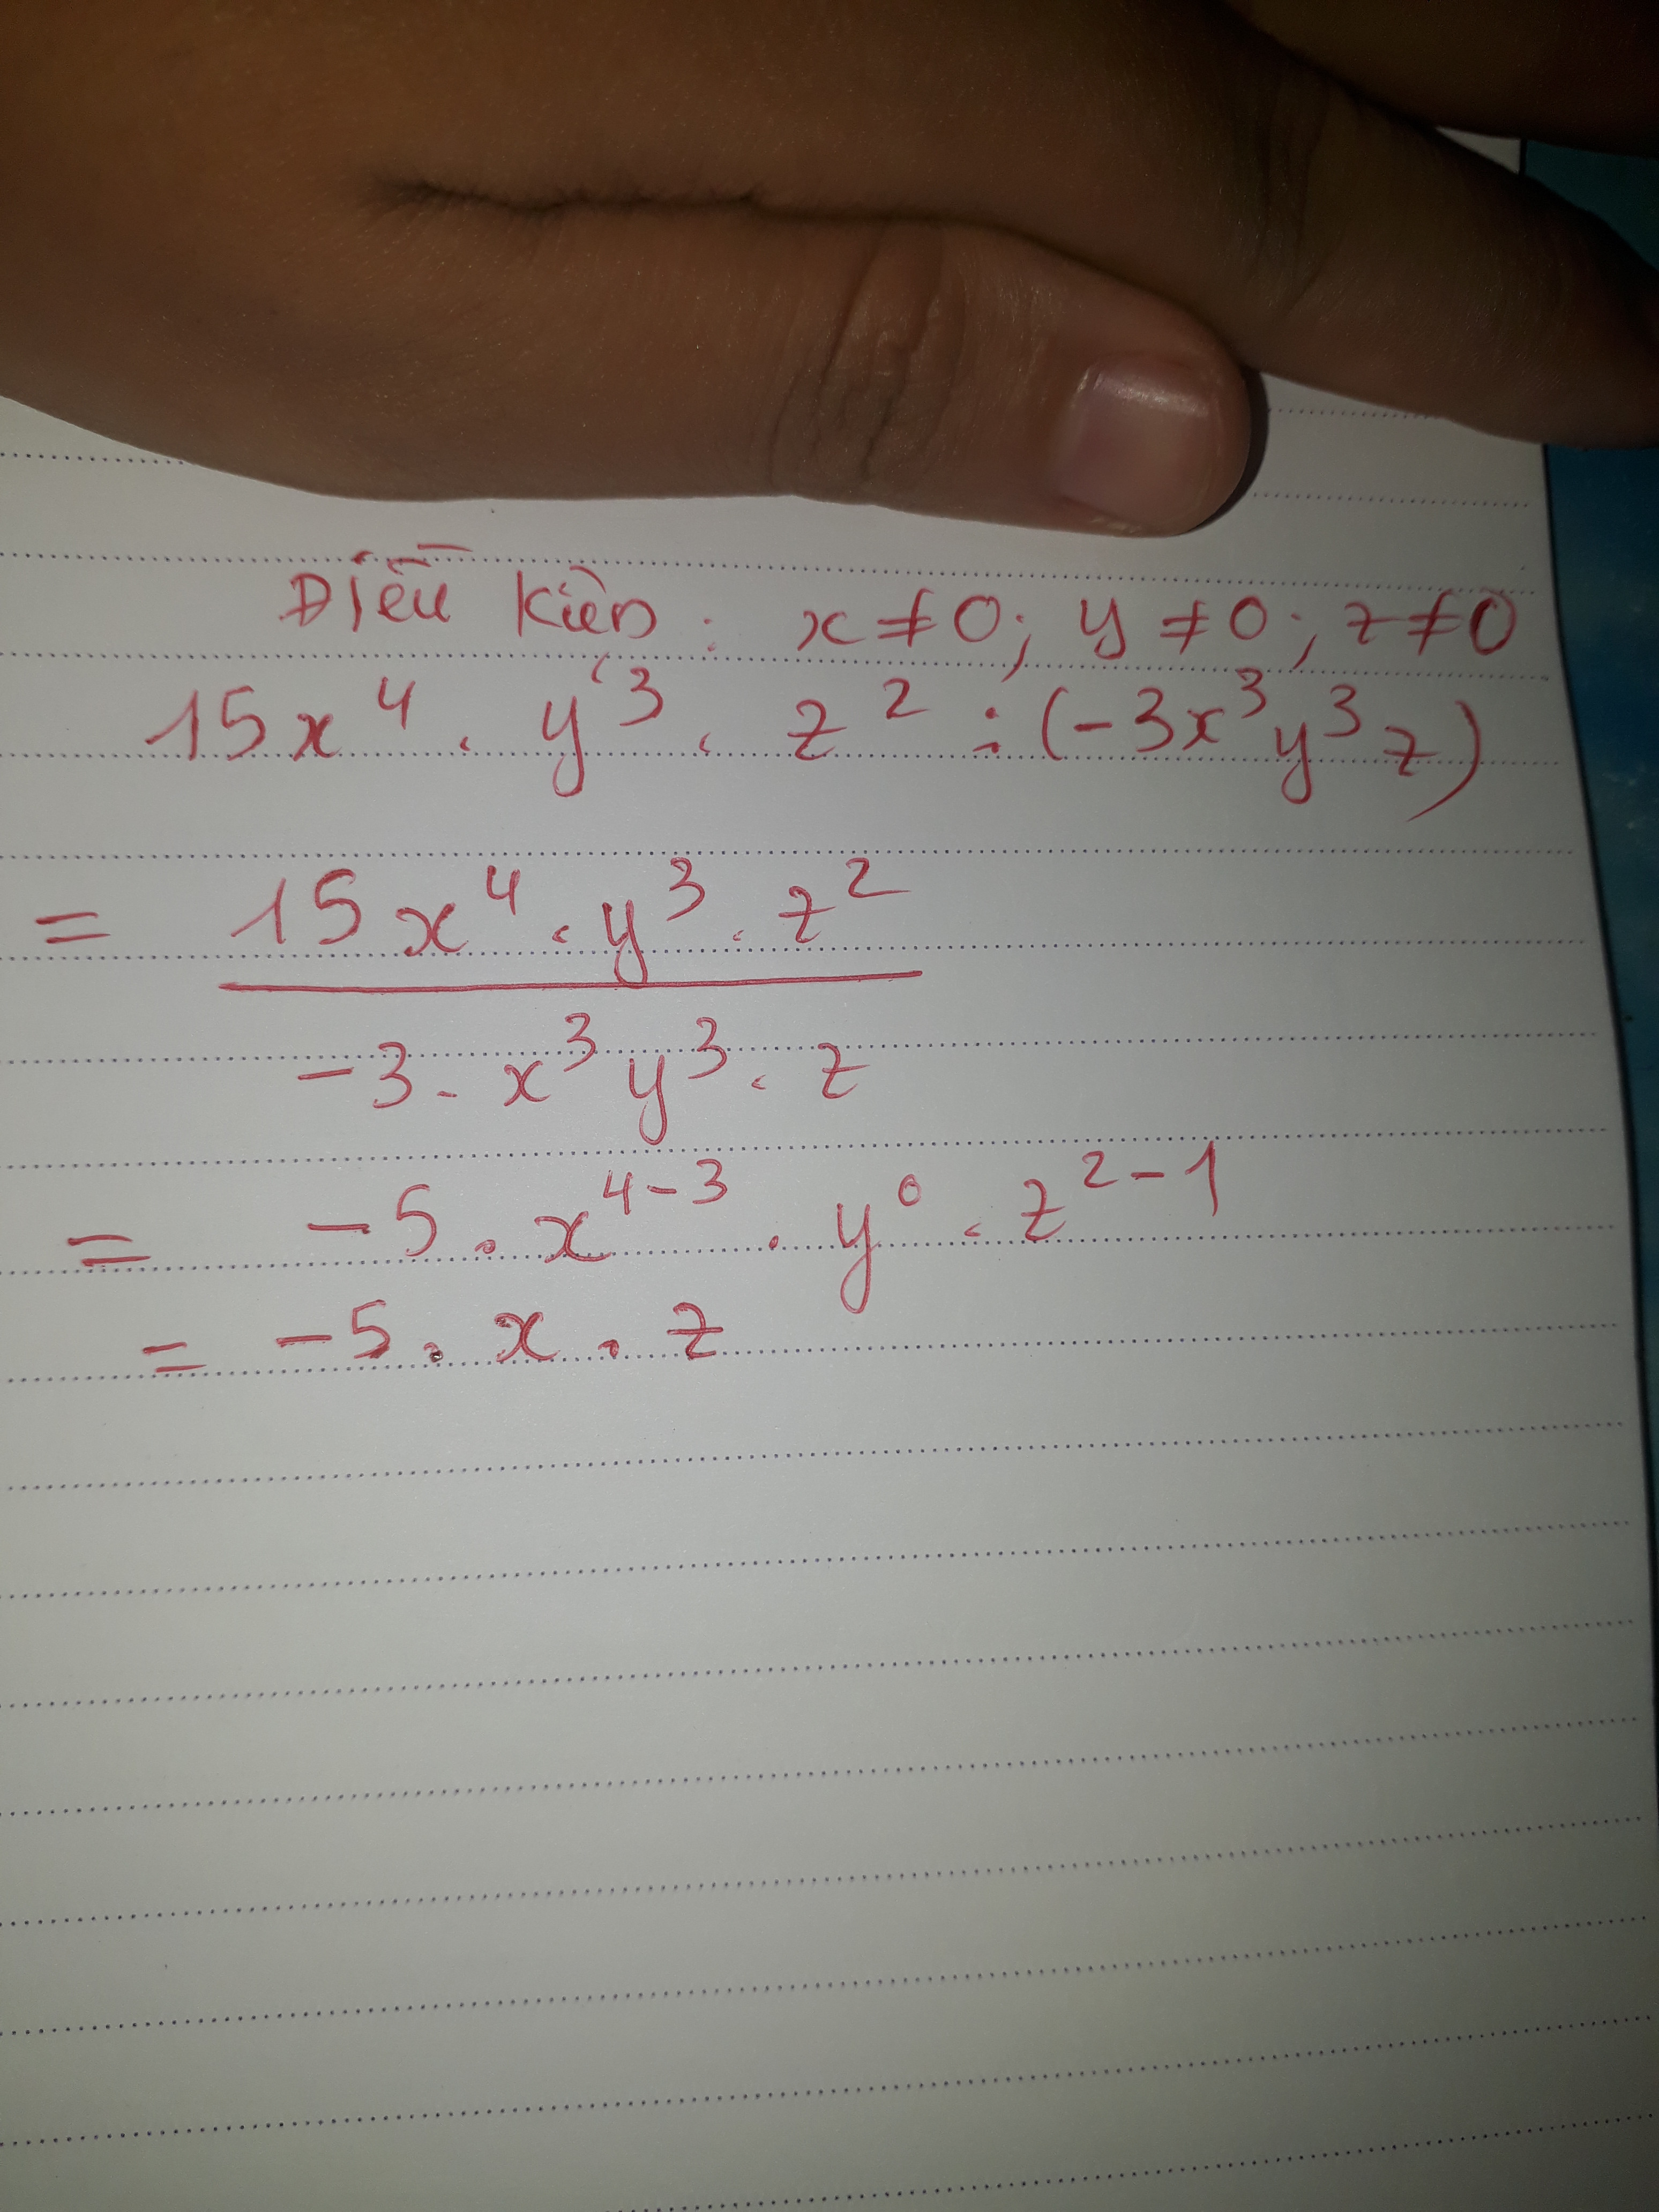 Điều kiện : x ≠ 0 ; y ≠ 0 ; z ≠ 0
15x⁴ . y³ . z² : (-3x³y³z)
= 15x⁴ . y³ . z²
-3 . x³y³ . z
= -5 . x⁴⁻³ . y⁰ . z²⁻¹
= -5 . x . z